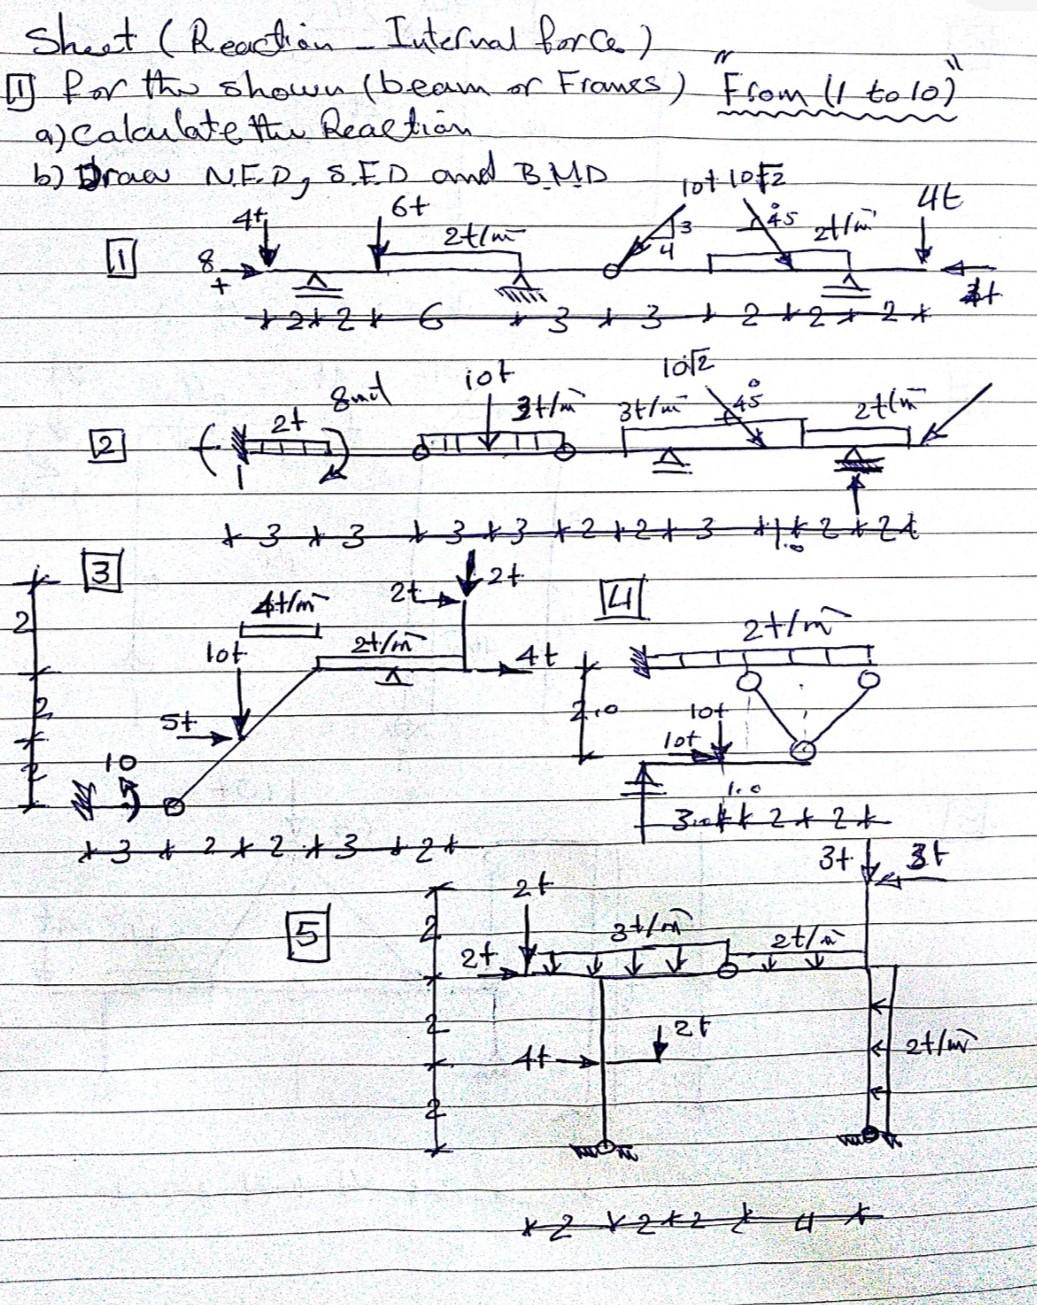 Sheet (Reaction - Internal force)
1 for the shown (beam or Frames) "From (1 to 10)"
a) Calculate the Reaction
b) Draw N.F.D, S.F.D and B.M.D
10t 10√2
4t 6t 3 45° 4t
2t/m 4 2t/m
1 8t
2 2 6 3 3 2 2 2
10t 10√2
8mt 45°
2t 3t/m 3t/m 2t/m
2
3 3 3 3 2 2 3 1.0 2 2
3 2t 2t 4
2 4t/m 2t/m
10t 2t/m 4t
2 5t 2.0 10t
10t
2 10 1.0
3 2 2 3 2 3.0 2 2
3t 3t
5 2t
2 3t/m 2t/m
2t
2 2t
4t 2t/m
2
2 2 2 4